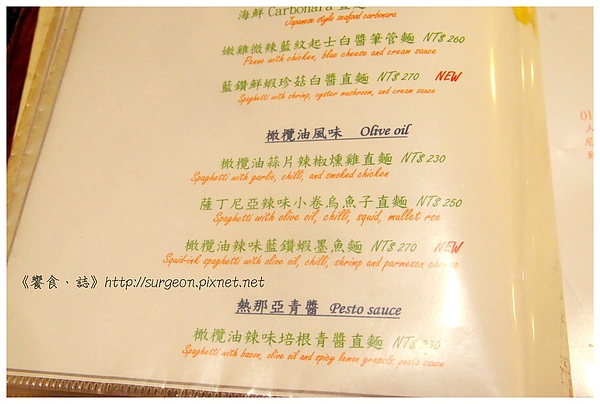 海鮮 Carbonara 直麵
Japanese style seafood carbonara
嫩雞微辣藍紋起士白醬筆管麵 NT$ 260
Penne with chicken, blue cheese and cream sauce
藍鑽鮮蝦珍菇白醬直麵 NT$ 270 NEW
Spaghetti with shrimp, oyster mushroom, and cream sauce
橄欖油風味 Olive oil
橄欖油蒜片辣椒燻雞直麵 NT$ 230
Spaghetti with garlic, chilli, and smoked chicken
薩丁尼亞辣味小卷烏魚子直麵 NT$ 250
Spaghetti with olive oil, chilli, squid, mallet roe
橄欖油辣味藍鑽蝦墨魚麵 NT$ 270 NEW
Squid-ink spaghetti with olive oil, chilli, shrimp and parmesan cheese
《饗食、誌》http://surgeon.pixnet.net
熱那亞青醬 Pesto sauce
橄欖油辣味培根青醬直麵 NT$ 230
Spaghetti with bacon, olive oil and spicy lemon grass & pesto sauce